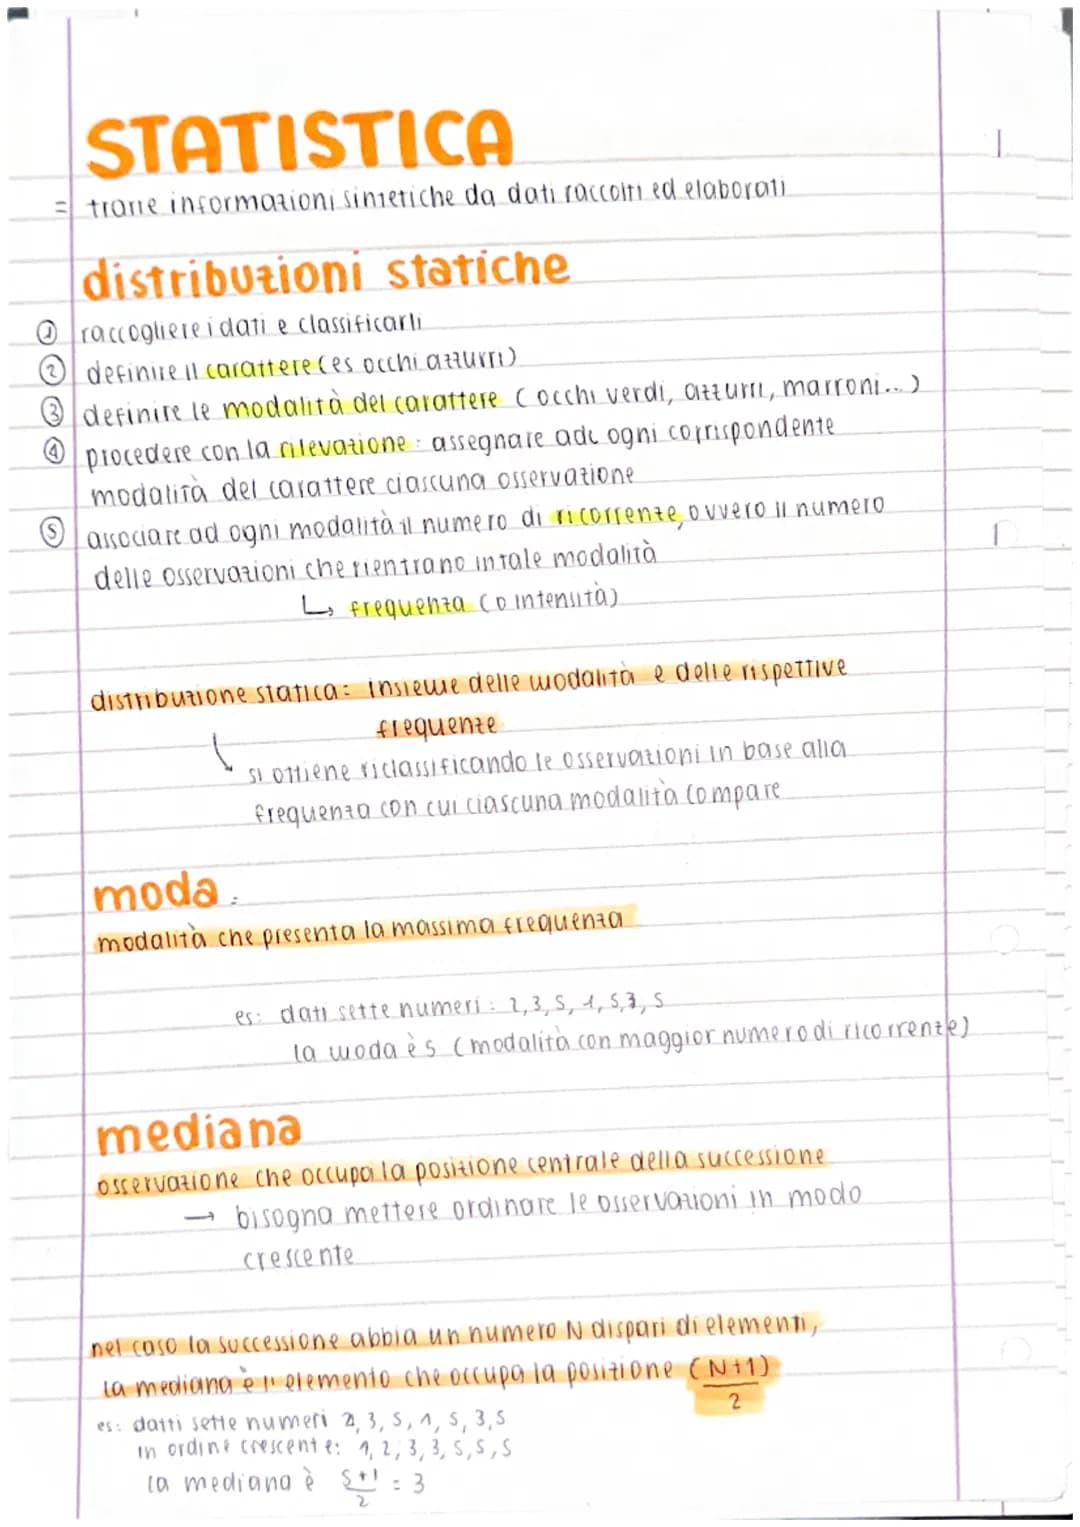 STATISTICA
= trarre informazioni sintetiche da dati raccolti ed elaborati
distribuzioni statiche
1 raccogliere i dati e classificarli
2 definire il carattere (es occhi azzurri)
3 definire le modalità del carattere (occhi verdi, azzurri, marroni...)
4 procedere con la rilevazione: assegnare ad ogni corrispondente
modalità del carattere ciascuna osservazione
5 associare ad ogni modalità il numero di ricorrenze, ovvero il numero
delle osservazioni che rientrano in tale modalità
↳ frequenza (o intensità)
distribuzione statica: insieme delle modalità e delle rispettive
frequenze
si ottiene riclassificando le osservazioni in base alla
frequenza con cui ciascuna modalità compare
moda:
modalità che presenta la massima frequenza
es: dati sette numeri: 2,3,5,1,5,3,5
la moda è 5 (modalità con maggior numero di ricorrenze)
mediana
osservazione che occupa la posizione centrale della successione
→ bisogna mettere ordinare le osservazioni in modo
crescente
nel caso la successione abbia un numero N dispari di elementi,
la mediana è l'elemento che occupa la posizione (N+1)
2
es: datti sette numeri 2,3,5,1,5,3,5
in ordine crescente: 1,2,3,3,5,5,5
la mediana è 5+1 = 3
2